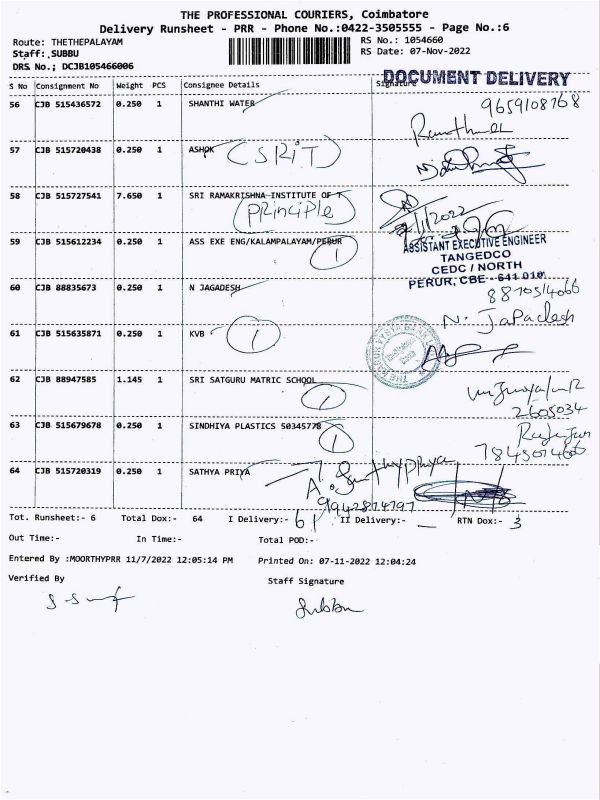 THE PROFESSIONAL COURIERS, Coimbatore
Delivery Runsheet - PRR - Phone No.:0422-3505555 - Page No.:6
Route: THETHEPALAYAM RS No.: 1054660
Staff: SUBBU RS Date: 07-Nov-2022
DRS No.; DCJB105466006
DOCUMENT DELIVERY
S No Consignment No Weight PCS Consignee Details Signature
56 CJB 515436572 0.250 1 SHANTHI WATER 9659108768
57 CJB 515720438 0.250 1 ASHOK (SRIT)
58 CJB 515727541 7.650 1 SRI RAMAKRISHNA INSTITUTE OF T
(Principle) 7/11/2022
59 CJB 515612234 0.250 1 ASS EXE ENG/KALAMPALAYAM/PERUR
1
ASSISTANT EXECUTIVE ENGINEER
TANGEDCO
CEDC / NORTH
PERUR, CBE - 641 010
60 CJB 88835673 0.250 1 N JAGADESH 8870514066
N. Jagadesh
61 CJB 515635871 0.250 1 KVB 1
62 CJB 88947585 1.145 1 SRI SATGURU MATRIC SCHOOL
1
2605034
63 CJB 515679678 0.250 1 SINDHIYA PLASTICS 50345778
1
64 CJB 515720319 0.250 1 SATHYA PRIYA
9942814797
Tot. Runsheet:- 6 Total Dox:- 64 I Delivery:- 61 II Delivery:- _ RTN Dox:- 3
Out Time:- In Time:- Total POD:-
Entered By :MOORTHYPRR 11/7/2022 12:05:14 PM Printed On: 07-11-2022 12:04:24
Verified By Staff Signature
Subbu